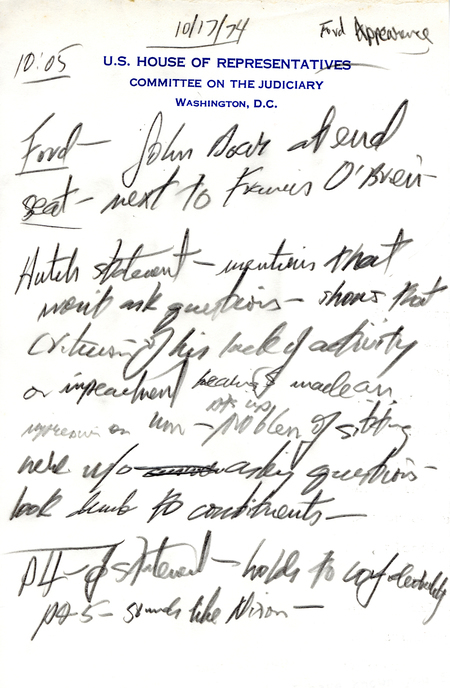 10/17/74
Ford Appearance
10:05
U.S. HOUSE OF REPRESENTATIVES
COMMITTEE ON THE JUDICIARY
WASHINGTON, D.C.
Ford - John Doar at end
seat - next to Francis O'Brien
Hutch statement - mentions that
won't ask questions - shows that
criticism of his lack of activity
on impeachment hearings made an
impression on him - problem of sitting
here w/o asking questions -
look dumb to constituents -
p4 - of statement - holds to confidentiality
pg 5 - sounds like Nixon -